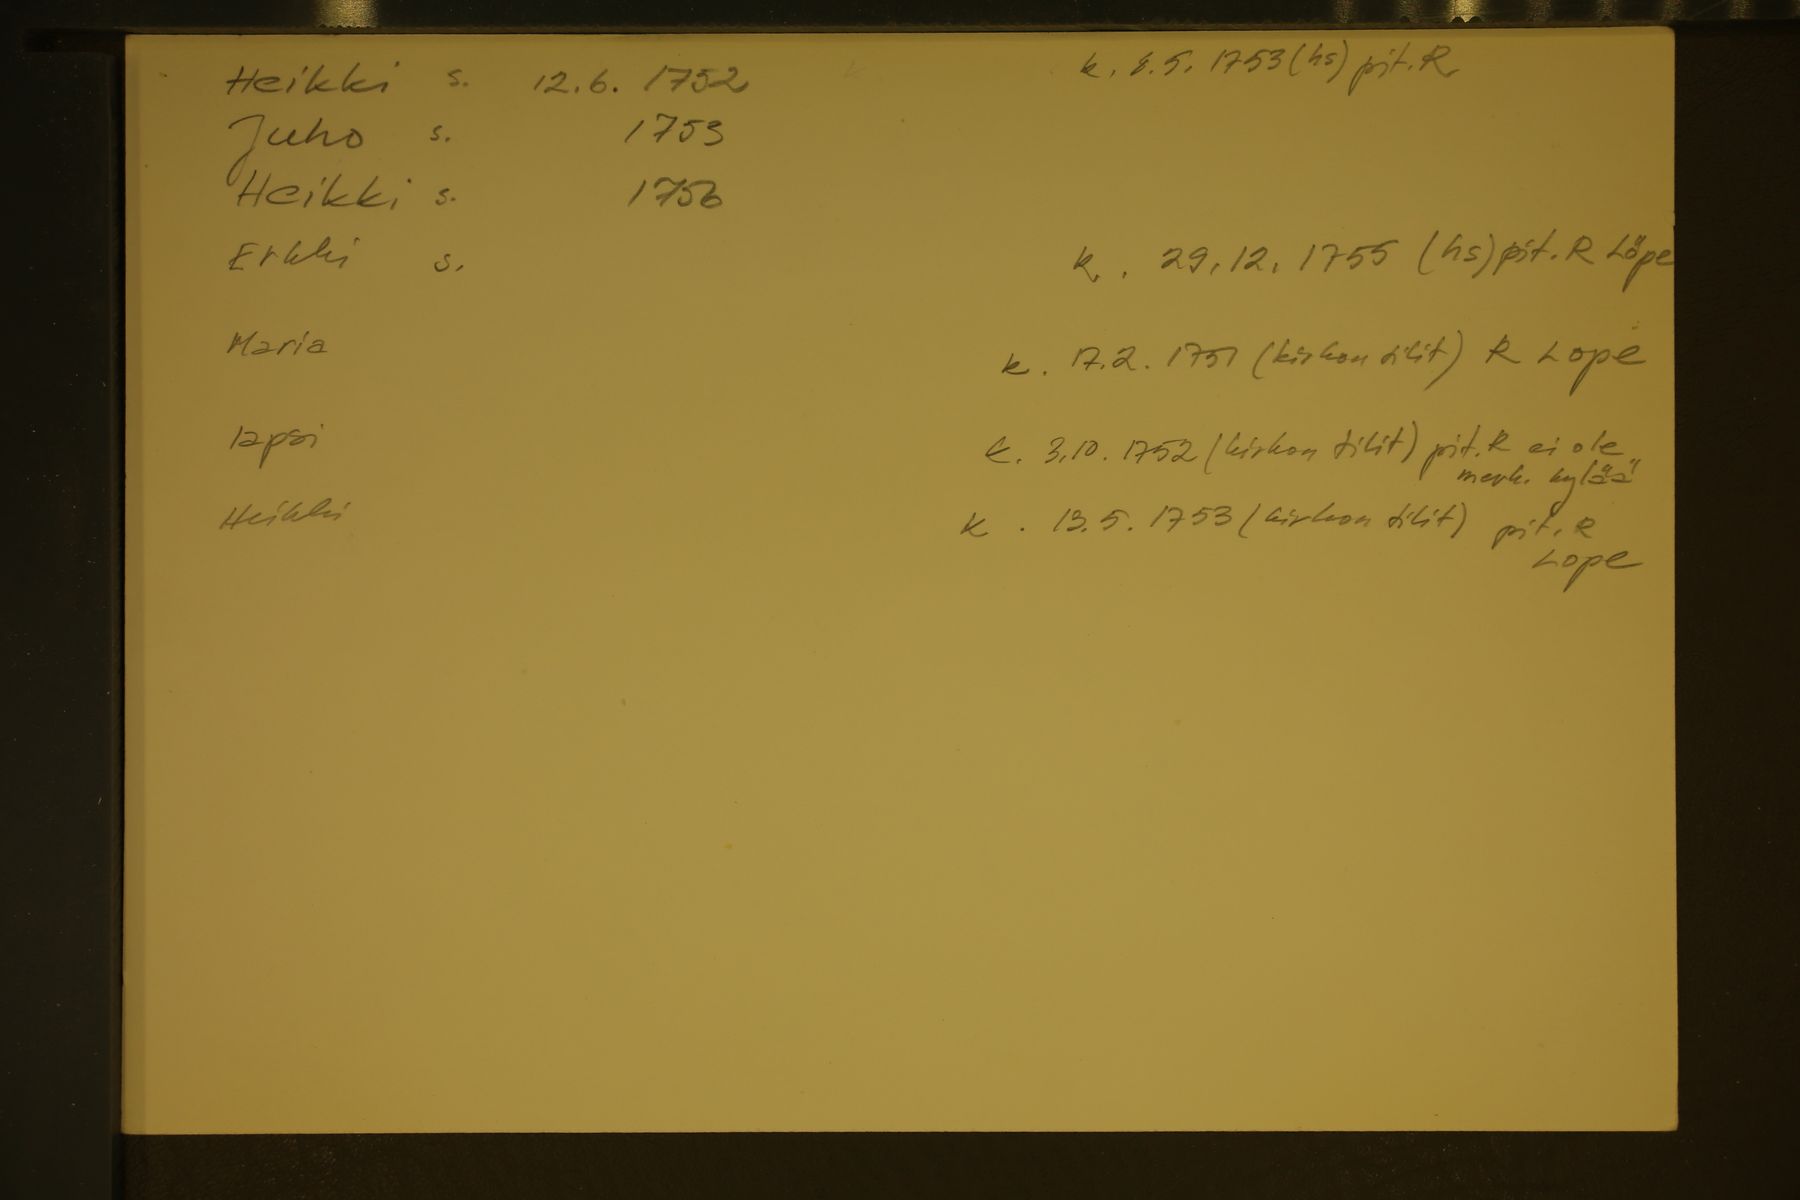 Heikki s. 12.6. 1752 k. 8.5. 1753 (hs) pit. R
Juho s. 1753
Heikki s. 1756
Erkki s. k. 29.12. 1755 (hs) pit. R Löpe
Maria k. 17.2. 1751 (kirkon tilit) R Lope
lapsi k. 3.10. 1752 (kirkon tilit) pit. R ei ole
merk. kylää
Heikki k. 13.5. 1753 (kirkon tilit) pit. R
Lope